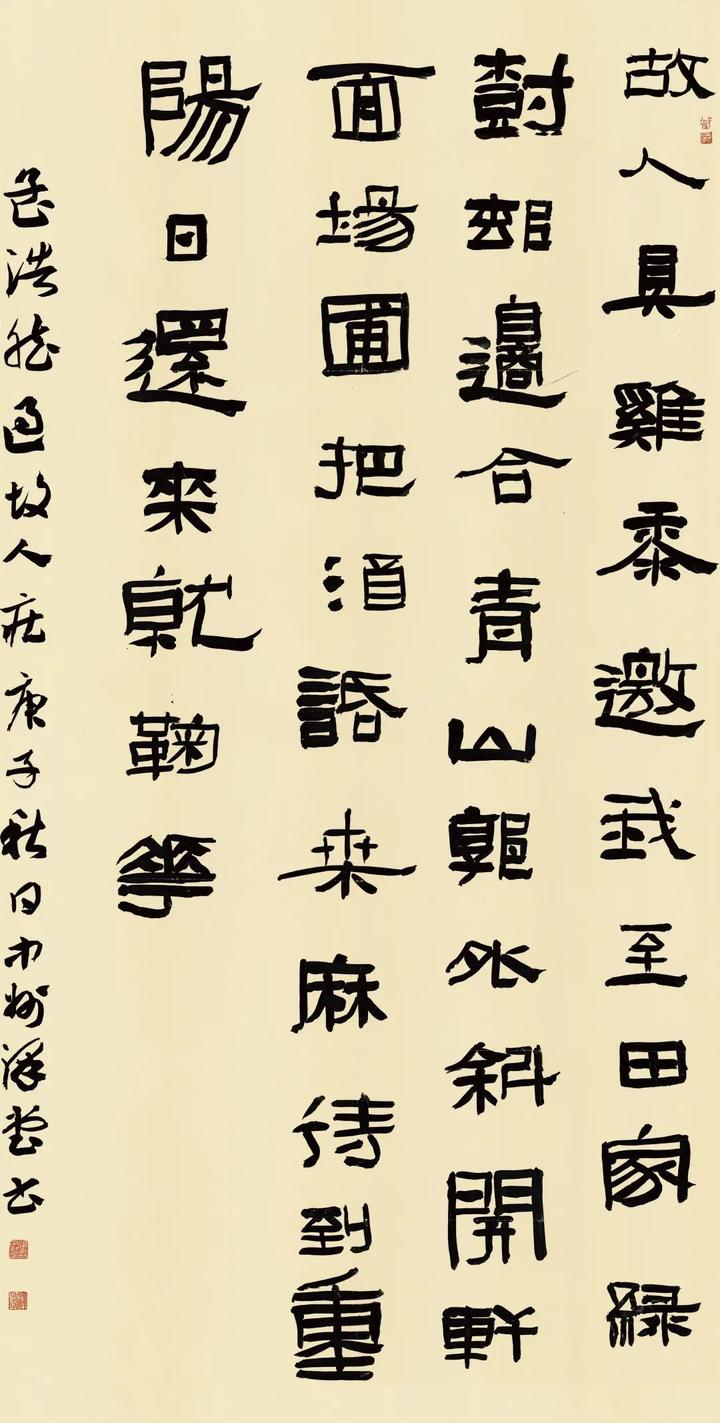 故人具雞黍邀我至田家緑
樹邨邊合青山郭外斜開軒
面場圃把酒話桑麻待到重
陽日還來就鞠華
孟浩然過故人莊庚子秋日中州堂書